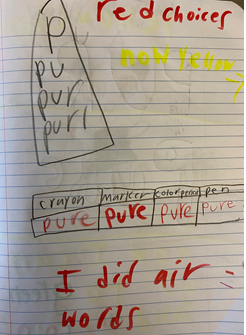 red choices
now yellow
p
pu
pur
pure
crayon marker color pencil pen
pure pure pure pure
I did air =
words